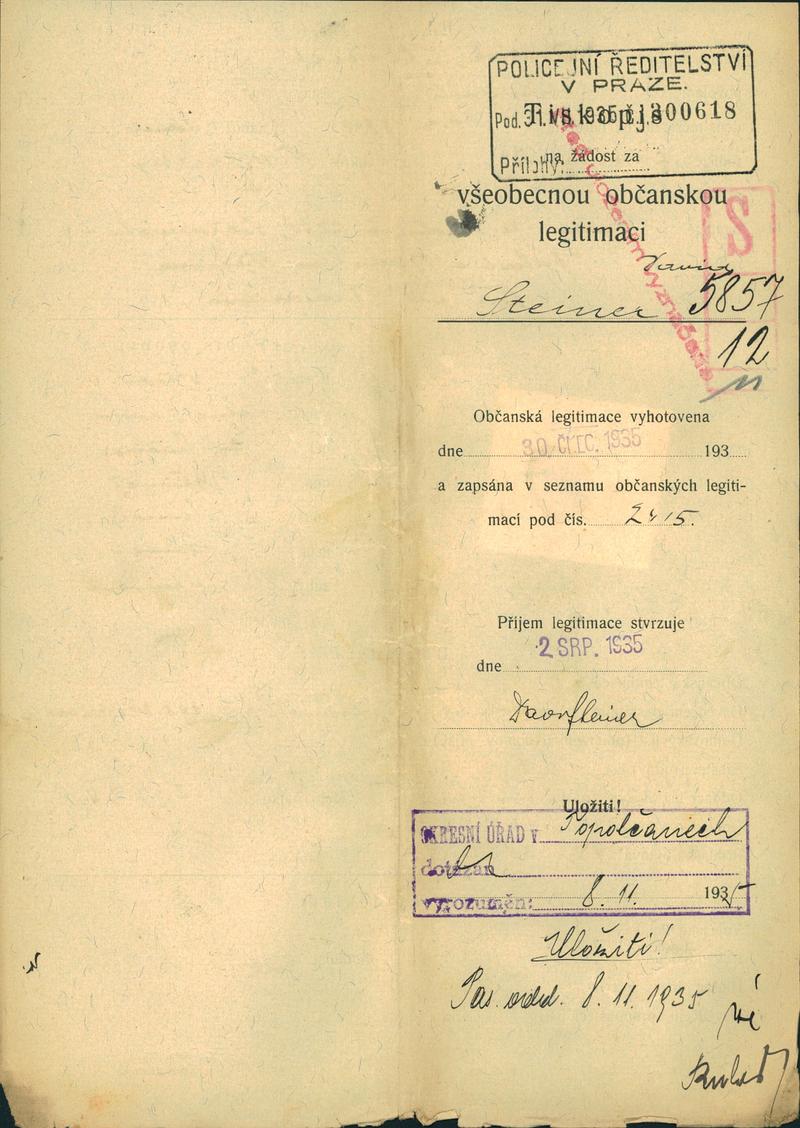 POLICEJNÍ ŘEDITELSTVÍ
V PRAZE.
Tiskopis
Pod. 31. 1935 300618
na žádost za
Přílohy:
všeobecnou občanskou
legitimaci
S
David
Steiner 5857
12
Občanská legitimace vyhotovena
dne 30. ČVC. 1935 193
a zapsána v seznamu občanských legiti-
mací pod čís. 2415.
Příjem legitimace stvrzuje
2 SRP. 1935
dne
Uložiti!
OKRESNÍ ÚŘAD v Topolčanech
dotázán
vyrozuměn: 8. 11. 1935
Uložiti!
Pas. odd. 8. 11. 1935